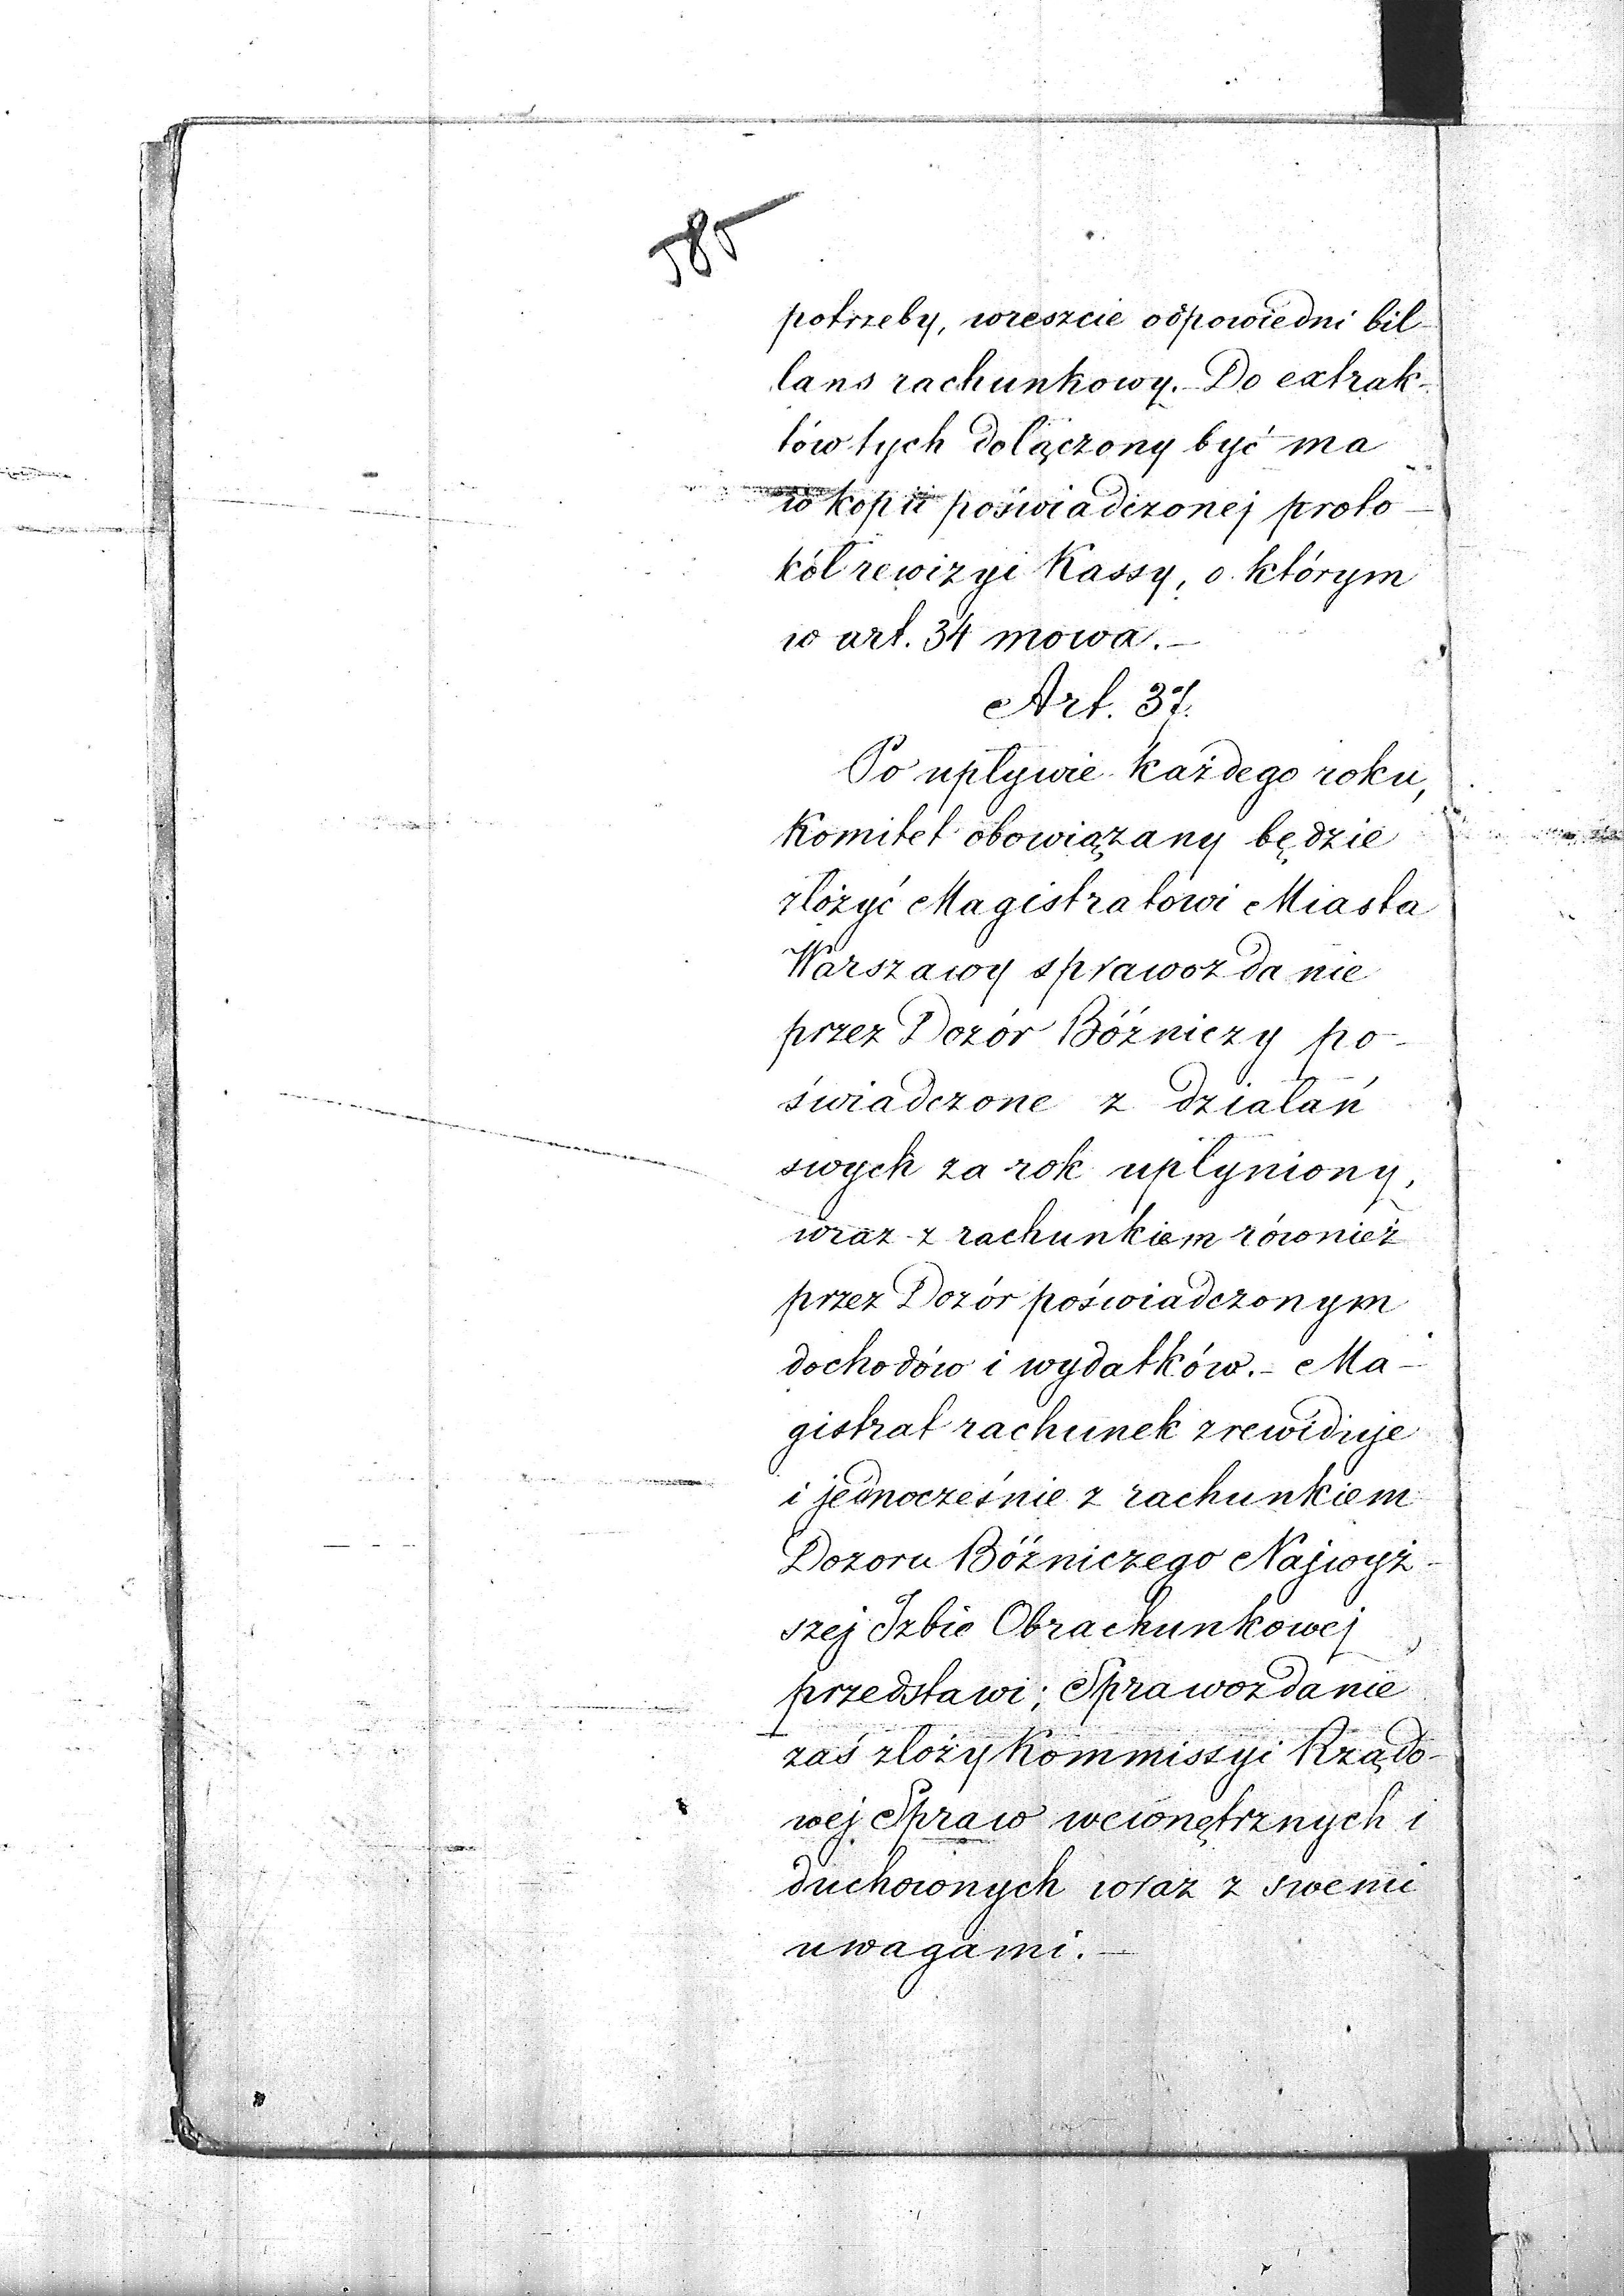 585
potrzeby, wreszcie odpowiedni bil-
lans rachunkowy.- Do extrak-
tów tych dołączony być ma
w kopii poświadczonej proto-
kół rewizyi Kassy, o którym
w art. 34 mowa.-
Art. 37.
Po upływie każdego roku,
Komitet obowiązany będzie
złożyć Magistratowi Miasta
Warszawy sprawozdanie
przez Dozór Bóżniczy po-
świadczone z działań
swych za rok upłyniony,
wraz z rachunkiem również
przez Dozór poświadczonym
dochodów i wydatków.- Ma-
gistrat rachunek zrewiduje
i jednocześnie z rachunkiem
Dozoru Bóżniczego Najwyż-
szej Izbie Obrachunkowej
przedstawi; Sprawozdanie
zaś złoży Kommissyi Rządo-
wej Spraw wewnętrznych i
duchownych wraz z swemi
uwagami.-